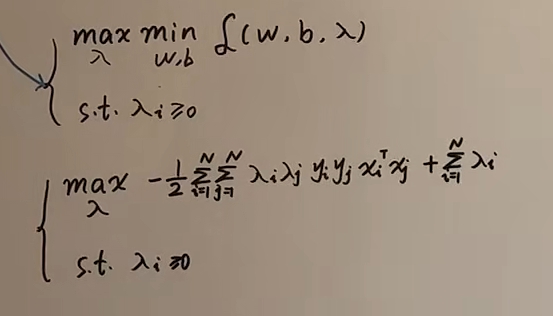 max min L(w, b, λ)
λ w,b
s.t. λi ≥ 0
max -1/2 ∑_{i=1}^{N} ∑_{j=1}^{N} λi λj yi yj xi^T xj + ∑_{i=1}^{N} λi
λ
s.t. λi ≥ 0